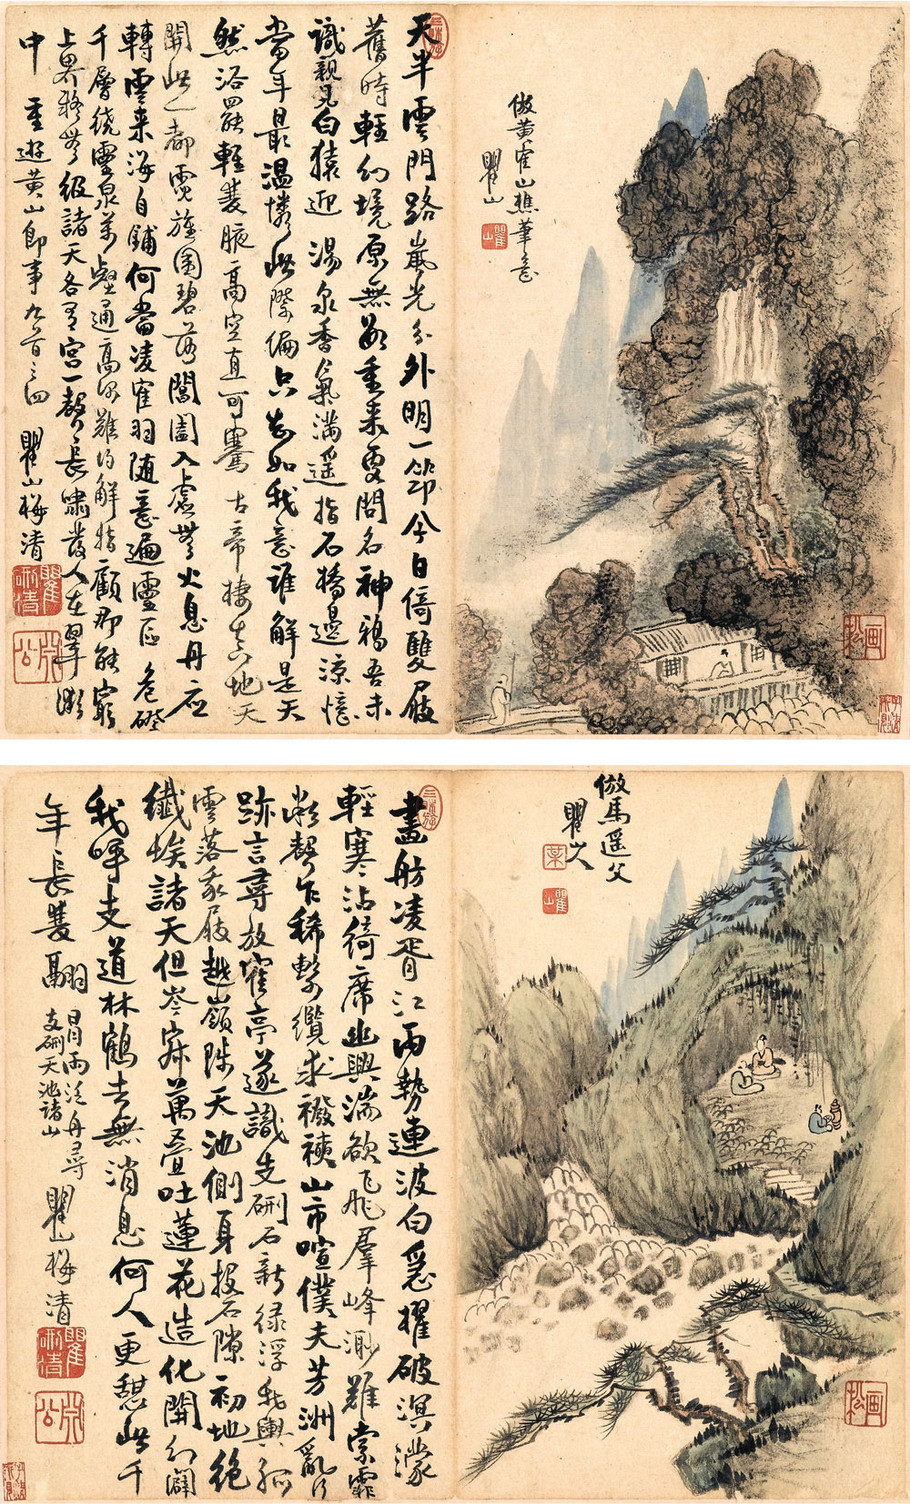 倣黃寉山樵筆意
瞿山
瞿山
畫松
天半雲門路嵐光分外明一筇今日倚雙屐
舊時輕幻境原無數重來更問名神鴉吾未
識親見白猿迎 湯泉香氣滿遙指石橋邊涼憶
當年最溫憐此際偏只知如我意誰解是天
然浴罷輕雙腋高空直可騫 古帝棲真地天
開此一都霓旌圍碧落閶闔入虛無火息丹應
轉雲來海自鋪何當凌寉羽隨意遍靈區 危磴
千層繞靈泉萬壑通高深難得解指顧那能窮
上界疑無級諸天各有宮一聲長嘯發人在翠微
中 重遊黃山即事九首之四 瞿山梅清
倣馬遙父
瞿山
瞿山
畫松
畫舫凌胥江雨勢連波白急櫂破溟濛
輕寒沾綺席幽興湍欲飛羣峰渺難索霏
微聲乍稀繫纜求襏襫山市喧僕夫芳洲亂行
跡言尋放寉亭遂識支硎石新綠浮我輿孤
雲落我屐越嶺陟天池側身投石隙初地絕
纖埃諸天但岑寂萬疊吐蓮花造化開幻闢
我呼支道林鶴去無消息何人更憩此千
年長雙翮 冒雨泛舟尋
支硎天池諸山 瞿山梅清